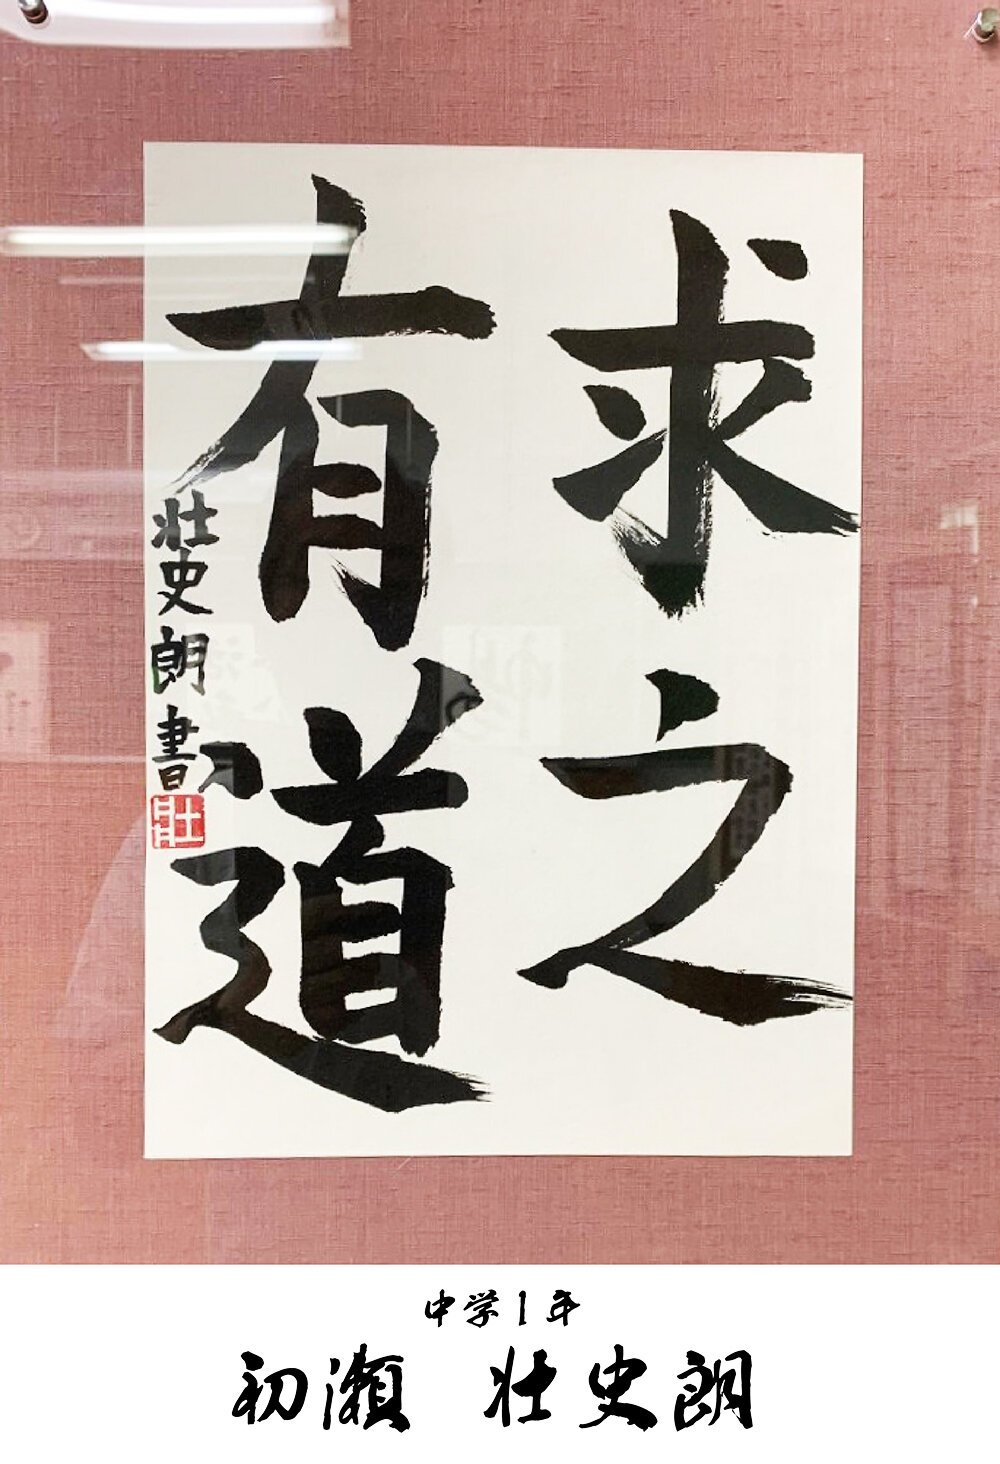 求之
有道
壮史朗書
壮
中学1年
初瀬 壮史朗